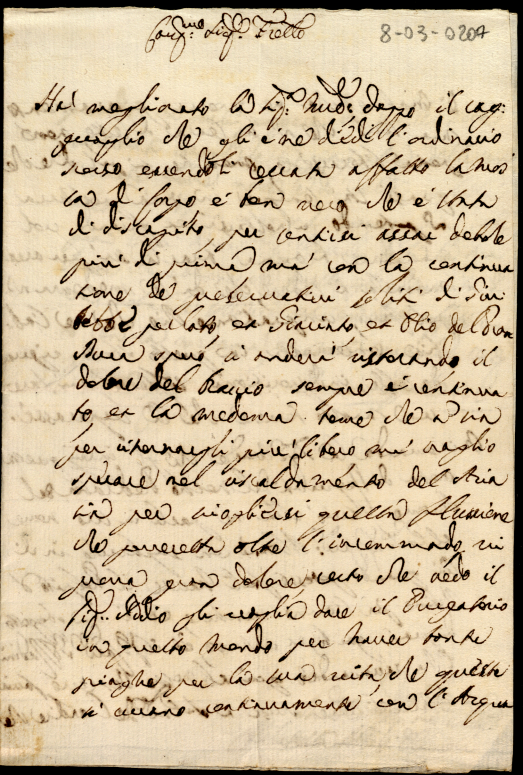 8-03-0207
Ha' megliorato la Sig.ra dopo il rag
guaglio che gli ene diedi l'ordinario
scorso essendoli cessata affatto la mos
sa di corpo é ben vero che é stata
di discapito, per sentirsi assai debole
piú di prima má con la continua
tione de preservativi soliti di
per lato, et Giacinto, et Olio de
spero si anderá ristorando, il
dolore del braccio sempre é continua
to et la medema teme che
per ritornargli piú libero má voglio
sperare nel riscaldamento del Aria
sia per sciogliersi questa flussione
che poveretta oltre l'incommodo, ui
proua gran dolore, certo che uedo il
Sig. Iddio gli uoglia dare il Purgatorio
in questo mondo per hauer tante
piaghe per la sua uita che queste
si curano continuamente con l'Acqua